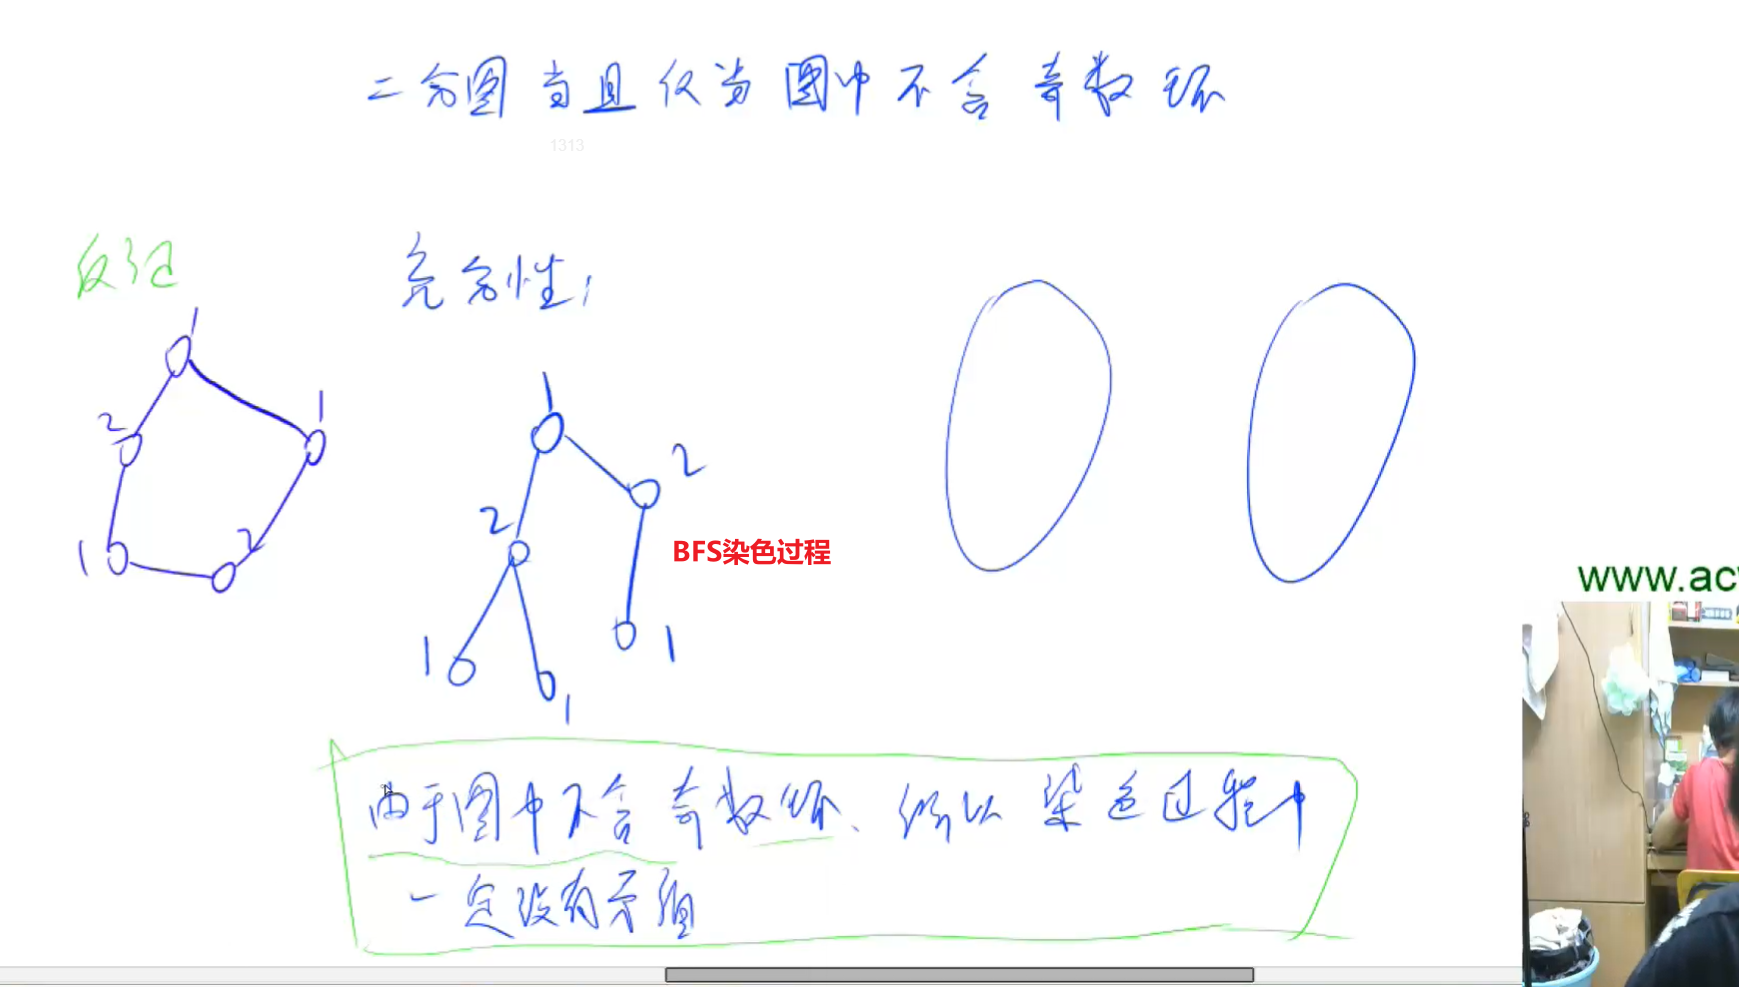 二分图 当且仅当 图中不含奇数环
1313
反证
充分性:
1
2
1
1
2
1
2
2
1
1
1
BFS染色过程
www.ac
由于图中不含奇数环、所以染色过程中
一定没有矛盾